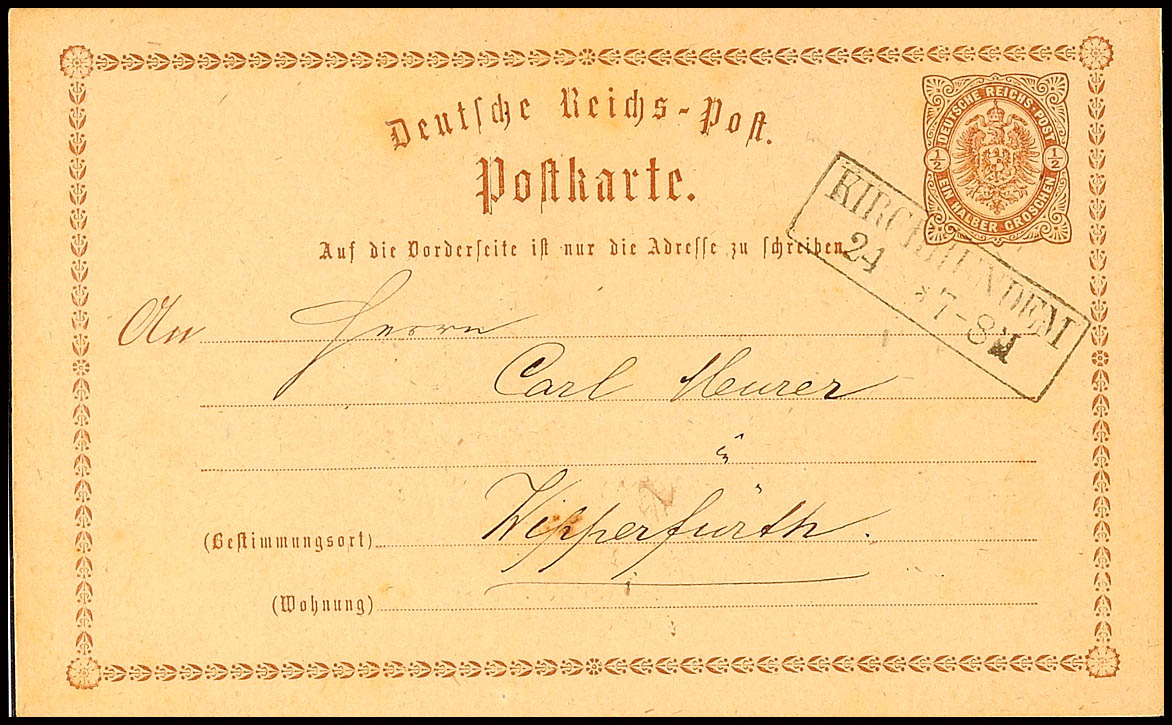 Deutsche Reichs-Post.
Postkarte.
DEUTSCHE REICHS-POST
1/2 1/2
EIN HALBER GROSCHEN
Auf die Vorderseite ist nur die Adresse zu schreiben.
KIRCHHUNDEM
24 *7-8
An Herrn
Carl Meurer
Wipperfürth.
(Bestimmungsort)
(Wohnung)